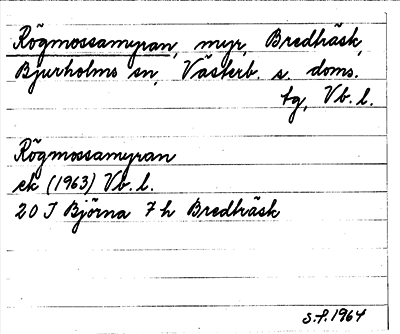 Rögmossamyran, myr, Bredträsk,
Bjurholms sn, Västerb. s. doms.
tg, Vb. l.
Rögmossamyran
ek (1963) Vb. l.
20 J Björna 7 h Bredträsk
S.F. 1964